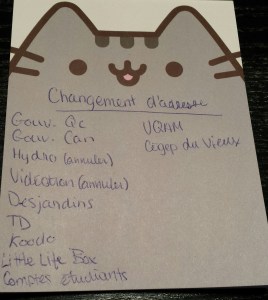 Changement d'adresse
Gouv. Qc
Gouv. Can
Hydro (annuler)
Vidéotron (annuler)
Desjardins
TD
Koodo
Little Life Box
Comptes étudiants
UQAM
Cégep du Vieux